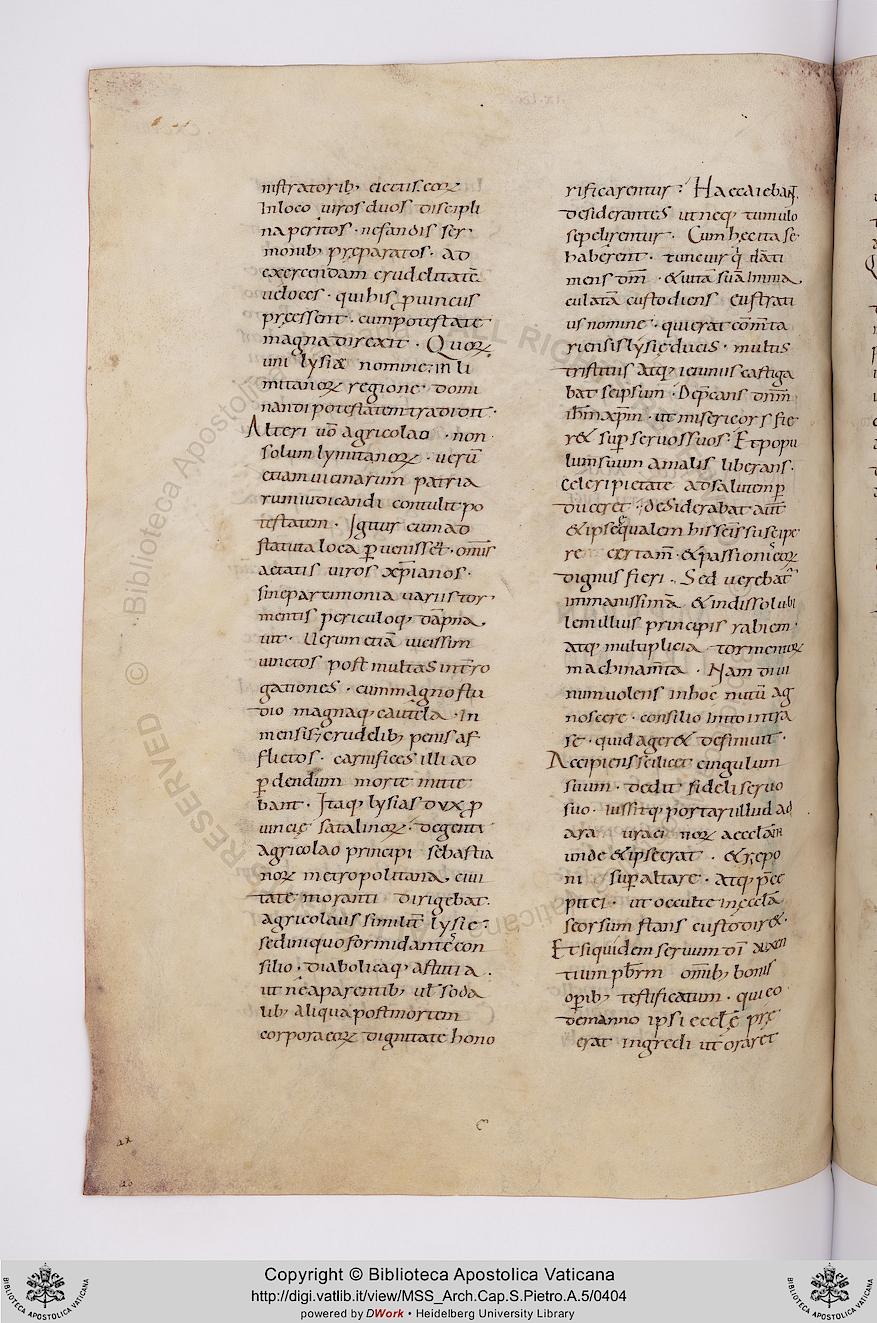 nistratorib; eiectis. eorꝝ
In loco uiros duos discipli
na peritos · nefandis ser
monib; pręparatos · ad
exercendam crudelitatē
ueloces · quib; his ꝓuinciis
pręessent · cum potestate
magna direxit · Quorꝝ
uni lysiæ nomine in li
mitanorꝝ regione · domi
nandi potestatem tradidit ·
Alteri uō agricolao · non
solum lymitanorꝝ · uerū
etiam uicinarum patria
rum iudicandi contulit po
testatem · Igitur cum ad
statuta loca ꝑuenisset · om̄s
aetatis uiros xp̄ianos ·
sine parcimonia uariis tor
mentis periculoq; dāpna
uit · Uerum etiā uicissim
uinctos post multas intro
gationes · cum magno stu
dio magnaq; cautela · In
mensis; crudelib; penis af
flictos · carnifices illi ad
ꝑdendum morte mitte
bant · Itaq; lysias dux ꝓ
uincię satalinorꝝ · degenti
agricolao principi sebastia
norꝝ metropolitana ciui
tate moranti dirigebat.
agricolaus similit̄ lysię :
sed iniquo formidante con
silio · diabolicaq; astutia .
ut ne a parentib; ul̄ soda
lib; aliqua post mortem
corpora eorꝝ dignitate hono
rificarentur : Haec aiebant
desiderantes ut neq; tumulo
sepelirentur · Cum hęc ita se
haberent · tunc uir q̄dā ti
mens dm̄ · & uitā suā Imma
culatā custodiens Eustrati
us nomine · qui erat com̄ta
riensis lysię ducis · multis
tristitiis atq; ieiuniis castiga
bat se ipsum · Dep̄cans dn̄m
ih̄m xp̄m · ut misericors fie
r& suꝑ seruos suos · Et popu
lum suum a malis liberans ·
Celeri pietate ad salutem ꝑ
duceret · desiderabat aut̄
& ipse qualem his se is suscipe
re certam̄ · & passionis eorꝝ
dignus fieri · Sed uerebat̄
immanissimā & indissolubi
lem illius principis rabiem ·
atq; multiplicia tormentorꝝ
machinam̄ta · Nam diui
num uolens in hoc nutū ag
noscere · consilio Inito intra
se · quid ager& definiuit ·
Accipiens scilicet cingulum
suum · dedit fideli seruo
suo · iussitq; portari illud ad
ara uraci norꝝ acceclā
unde & ipse erat · & repo
ni suꝑ altare · atq; p̄ce
pit ei · ut occulte in ęcclā
seorsum stans custodir& ·
Et siquidem seruum dī auxen
tium pb̄rm om̄ib; bonis
oꝑib; testificatum · qui eo
dem anno ipsi eccl̄ę prę
erat ingredi ut oraret
Copyright © Biblioteca Apostolica Vaticana
http://digi.vatlib.it/view/MSS_Arch.Cap.S.Pietro.A.5/0404
powered by DWork • Heidelberg University Library